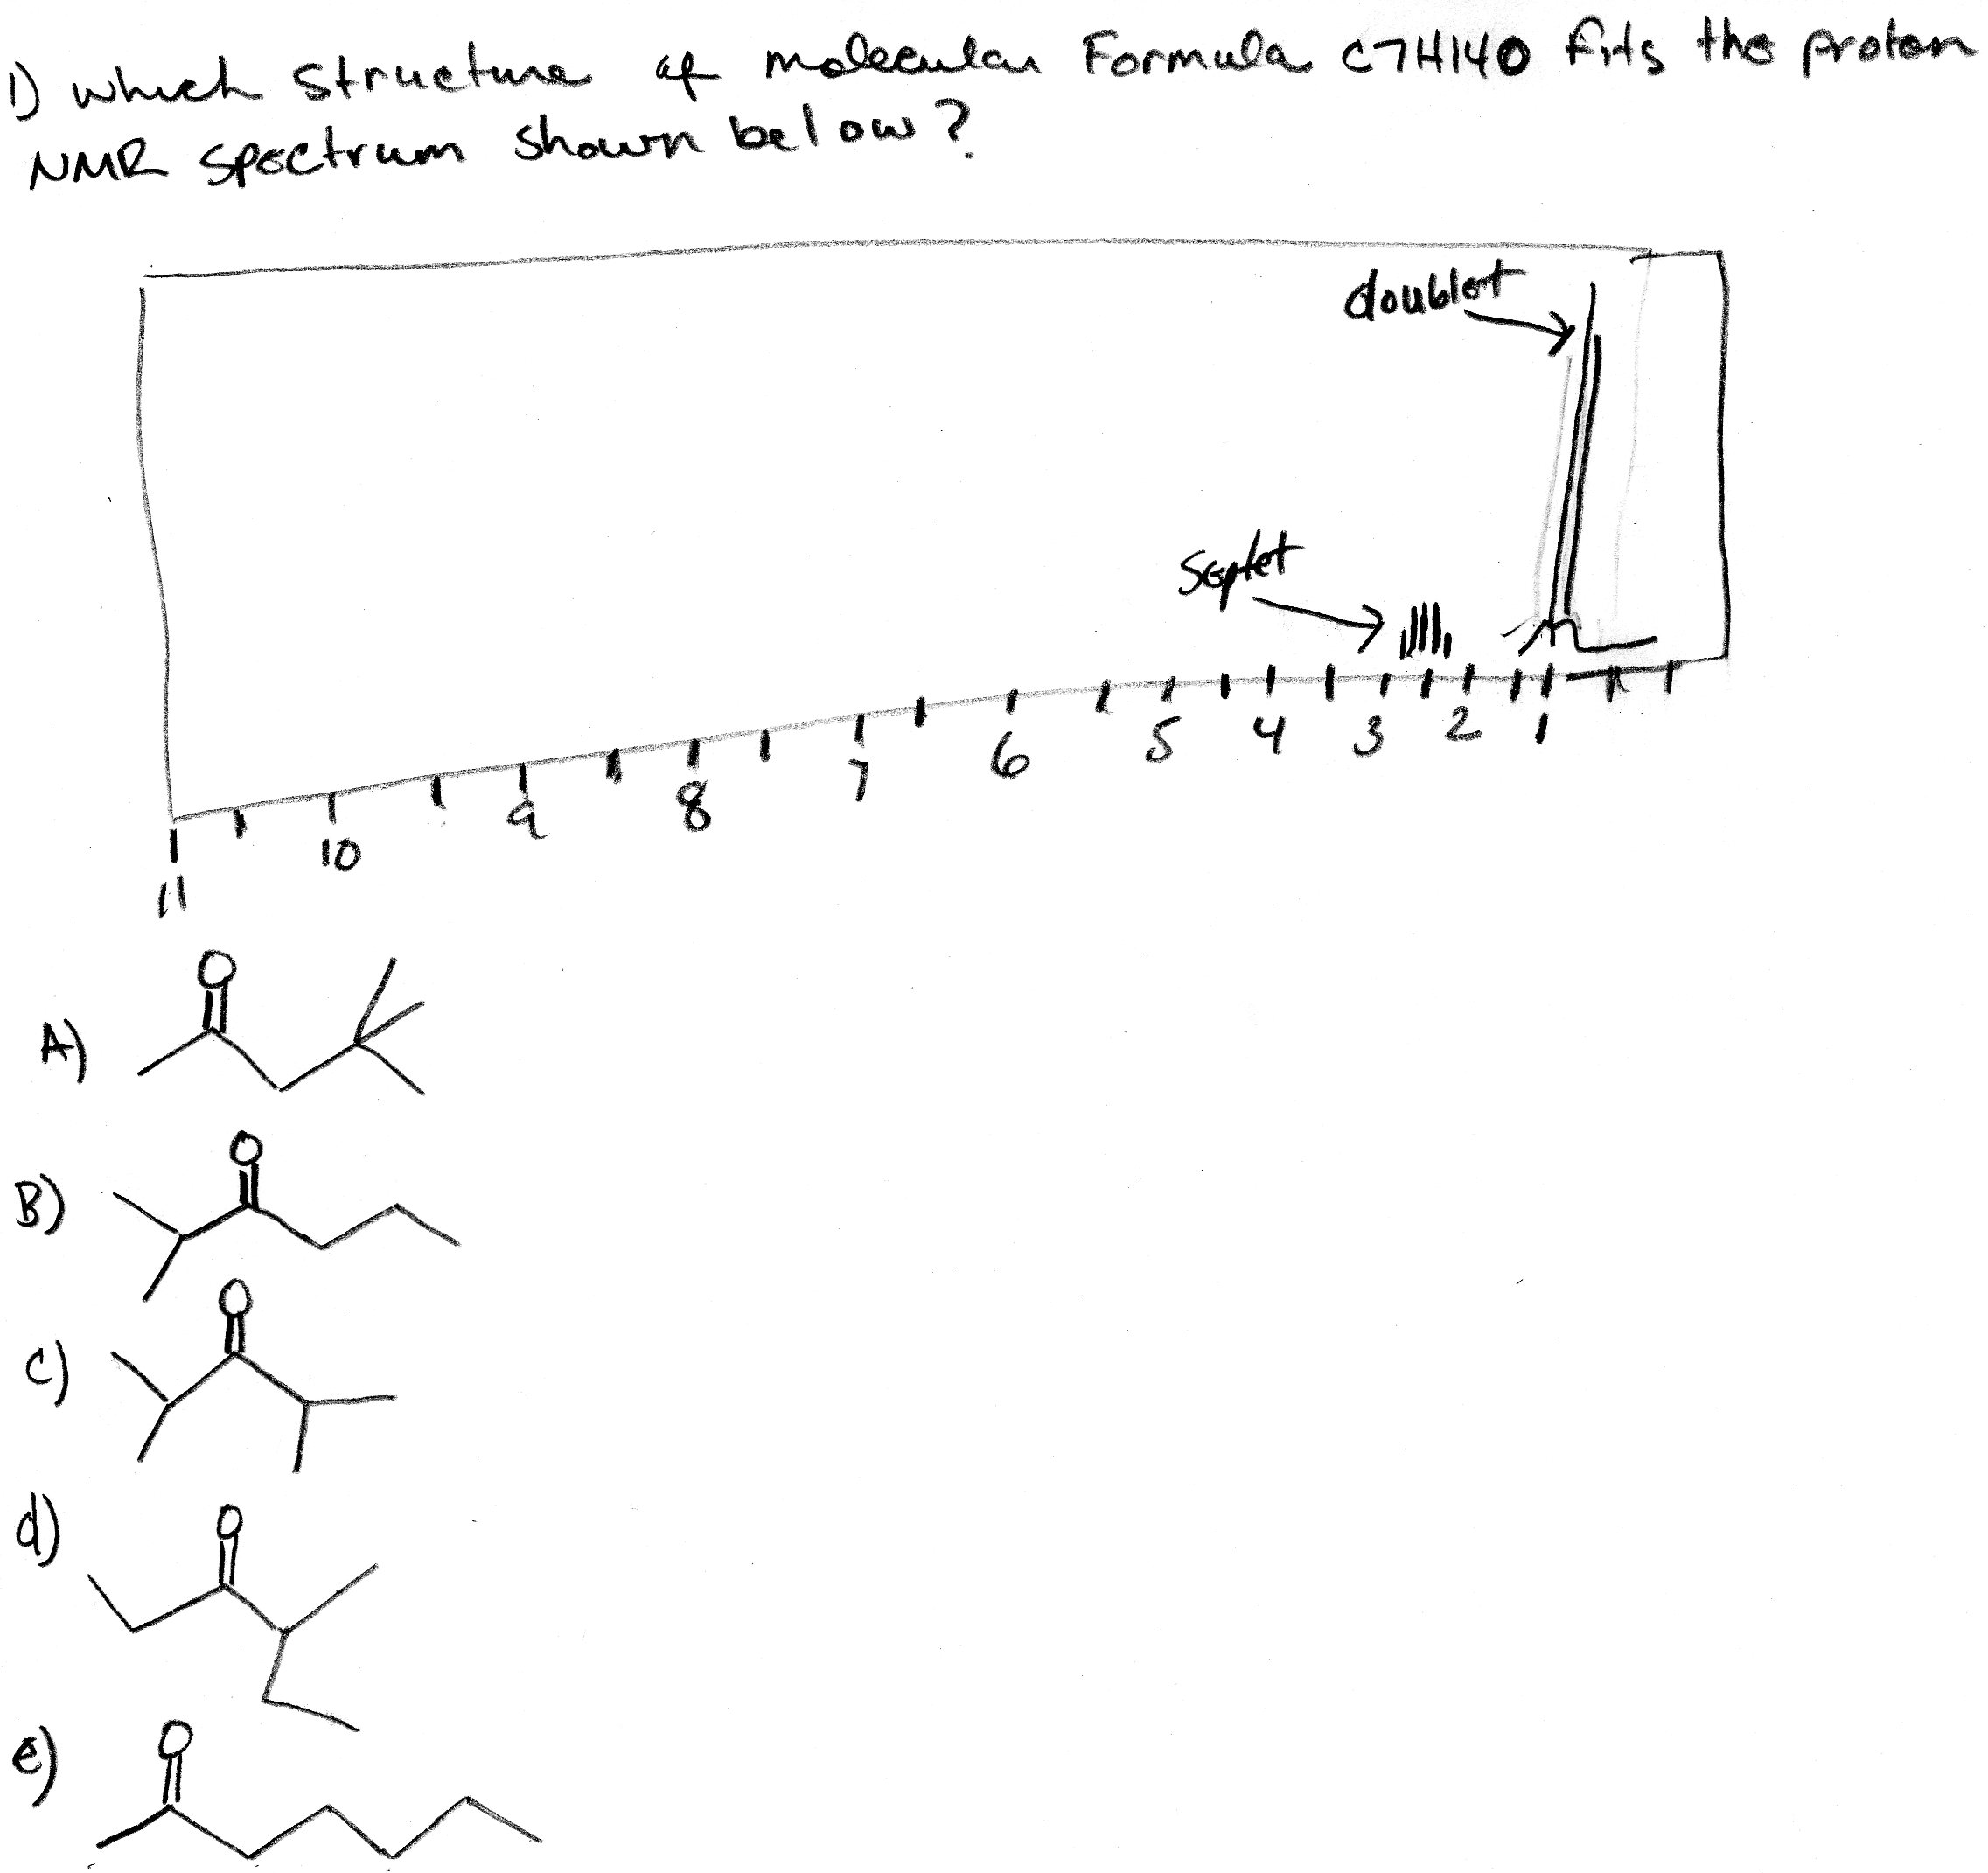 1) which structure of molecular Formula C7H14O fits the proton
NMR spectrum shown below?
doublet
septet
11 10 9 8 7 6 5 4 3 2 1
A)
O
B)
O
C)
O
d)
O
e)
O